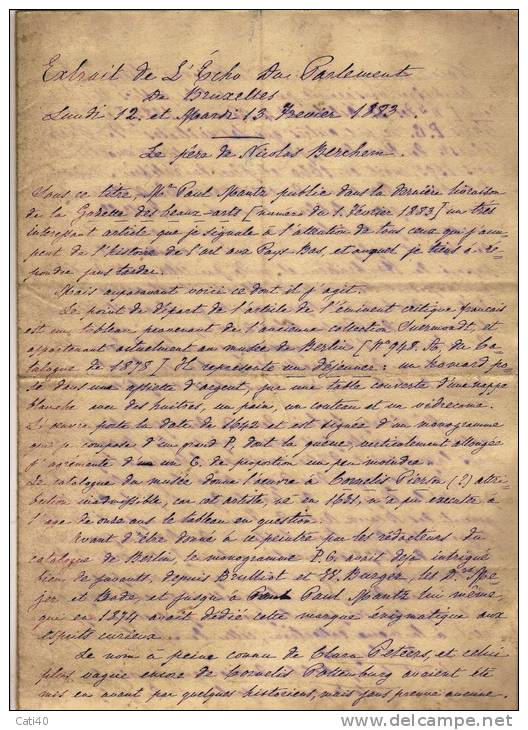 Extrait de L'Écho Du Parlement
De Bruxelles
Lundi 12 et Mardi 13 Février 1883.
Le père de Nicolas Berchem.
Sous ce titre, Mr Paul Mantz publie dans la dernière livraison
de la Gazette des beaux-arts [numéro du 1. Février 1883] un très
intéressant article que je signale à l'attention de tous ceux qui s'occu-
pent de l'histoire de l'art aux Pays-Bas, et auquel je tiens à ré-
pondre sans tarder.
Mais auparavant voici ce dont il s'agit.
Le point de départ de l'article de l'éminent critique français
est un tableau provenant de l'ancienne collection Suermondt, et
appartenant actuellement au musée de Berlin [No 948. du Ca-
talogue de 1878] Il représente un déjeuner: un homard po-
sé dans une assiette d'argent, sur une table couverte d'une nappe
blanche avec des huîtres, un pain, un couteau et un vidrecome.
L'œuvre porte la date de 1642 et est signée d'un monogramme
qui se compose d'un grand P, dont la queue, verticalement allongée
s'agrémente d'un C de proportion un peu moindre.
Le catalogue du musée donne l'œuvre à Cornelis Pierson (?) attri-
bution inadmissible, car cet artiste, né en 1631, n'a pu exécuter à
l'age de onze ans le tableau en question.
Avant d'être donné à ce peintre par les rédacteurs du
catalogue de Berlin, le monogramme P.C. avait déjà intrigué
bien de savants, depuis Brulliot et W. Burger, les Drs Me-
jer et Bode et jusqu'à Paul Mantz lui même
qui en 1874 avait dédié cette marque énigmatique aux
esprits curieux.
Le nom à peine connu de Clara Peteers, et celui
plus vague encore de Cornelis Pottenburg avaient été
mis en avant par quelques historiens, mais sans preuve aucune.
Cati40
www.delcampe.net